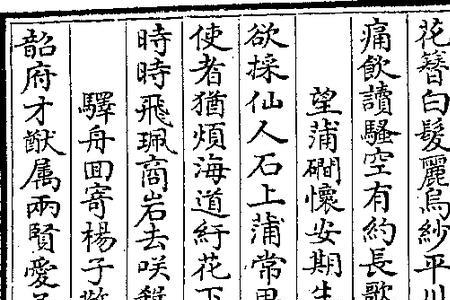 花簪白髮麗烏紗平川
痛飲讀騷空有約長歌
望蒲磵懷安期生
欲採仙人石上蒲常
使者猶煩海道紆花下
時時飛珮商岩去咲
驛舟囬寄楊子
韶府才猷属兩賢愛